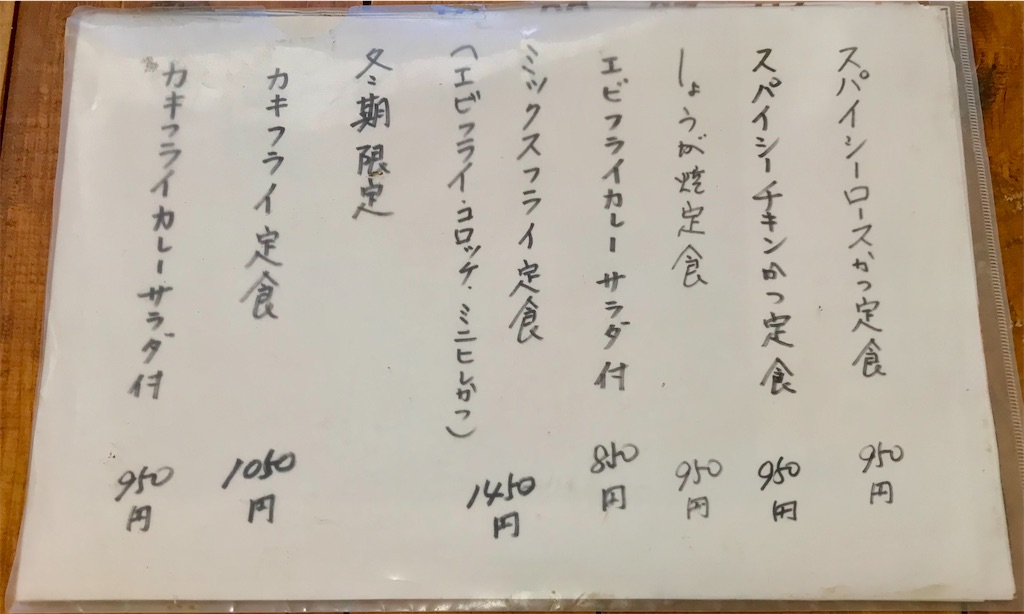 スパイシーロースかつ定食 950円
スパイシーチキンかつ定食 950円
しょうが焼定食 950円
エビフライカレーサラダ付 850円
ミックスフライ定食 1450円
(エビフライ・コロッケ・ミニヒレかつ)
冬期限定
カキフライ定食 1050円
カキフライカレーサラダ付 950円